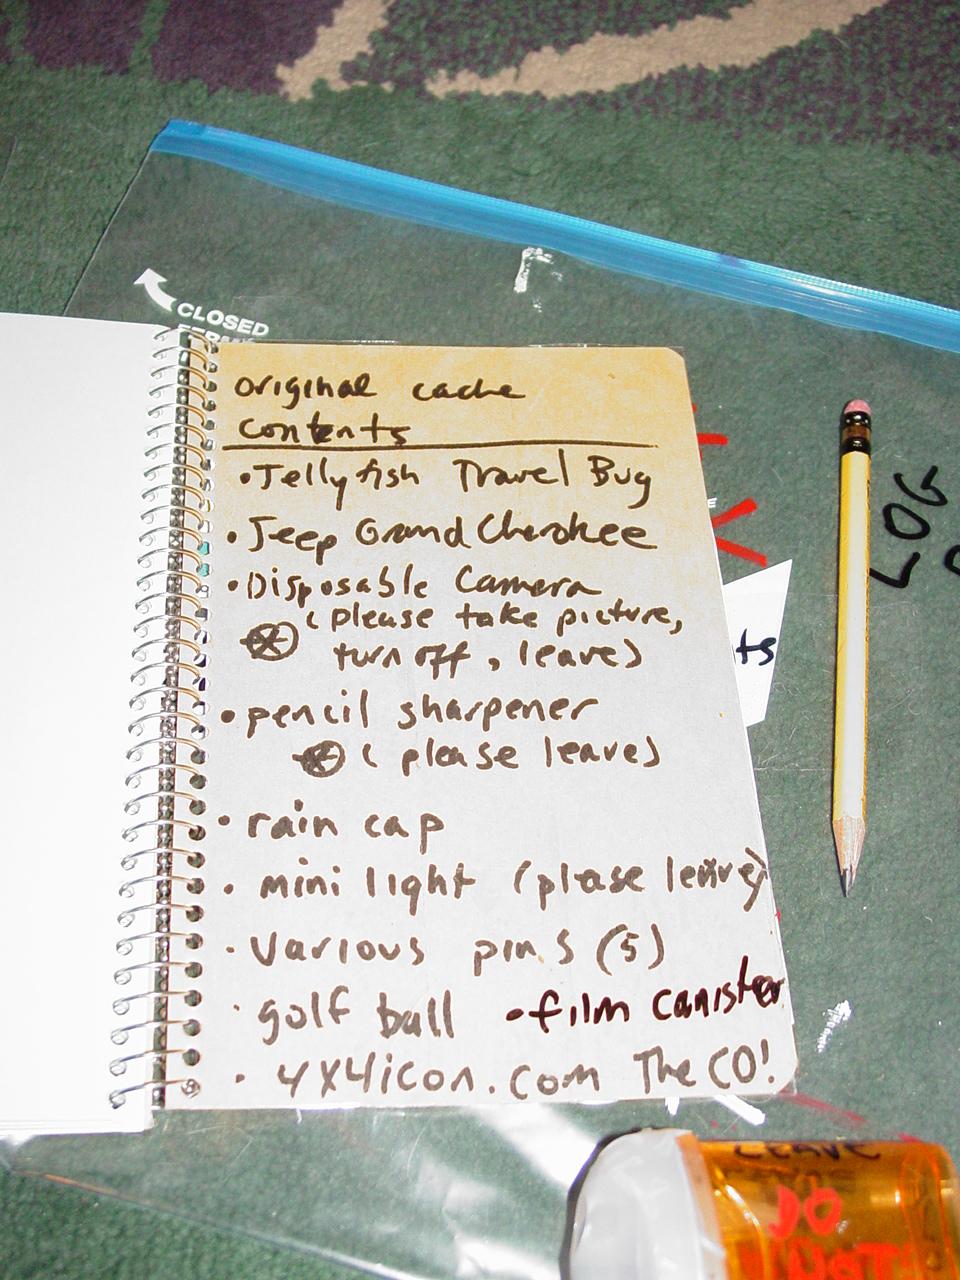 CLOSED
original cache
contents
• Jellyfish Travel Bug
• Jeep Grand Cherokee
• Disposable Camera
(please take picture,
turn off, leave)
• pencil sharpener
(please leave)
• rain cap
• mini light (please leave)
• various pins (5)
• golf ball • film canister
• 4x4icon.com The CO!
ts
LOG
LEAVE
DO
NOT